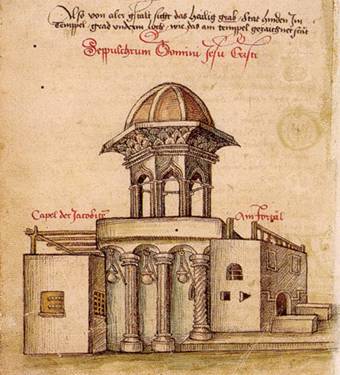 Also von aler gstalt sicht das hailig grab. Stat hinden Im
Tempel. grad undern loch. wie das am tempel gezaichnet stat
Seppulchrum Domini Jesu Cristi
Capel der Jacobitē
Am Portal